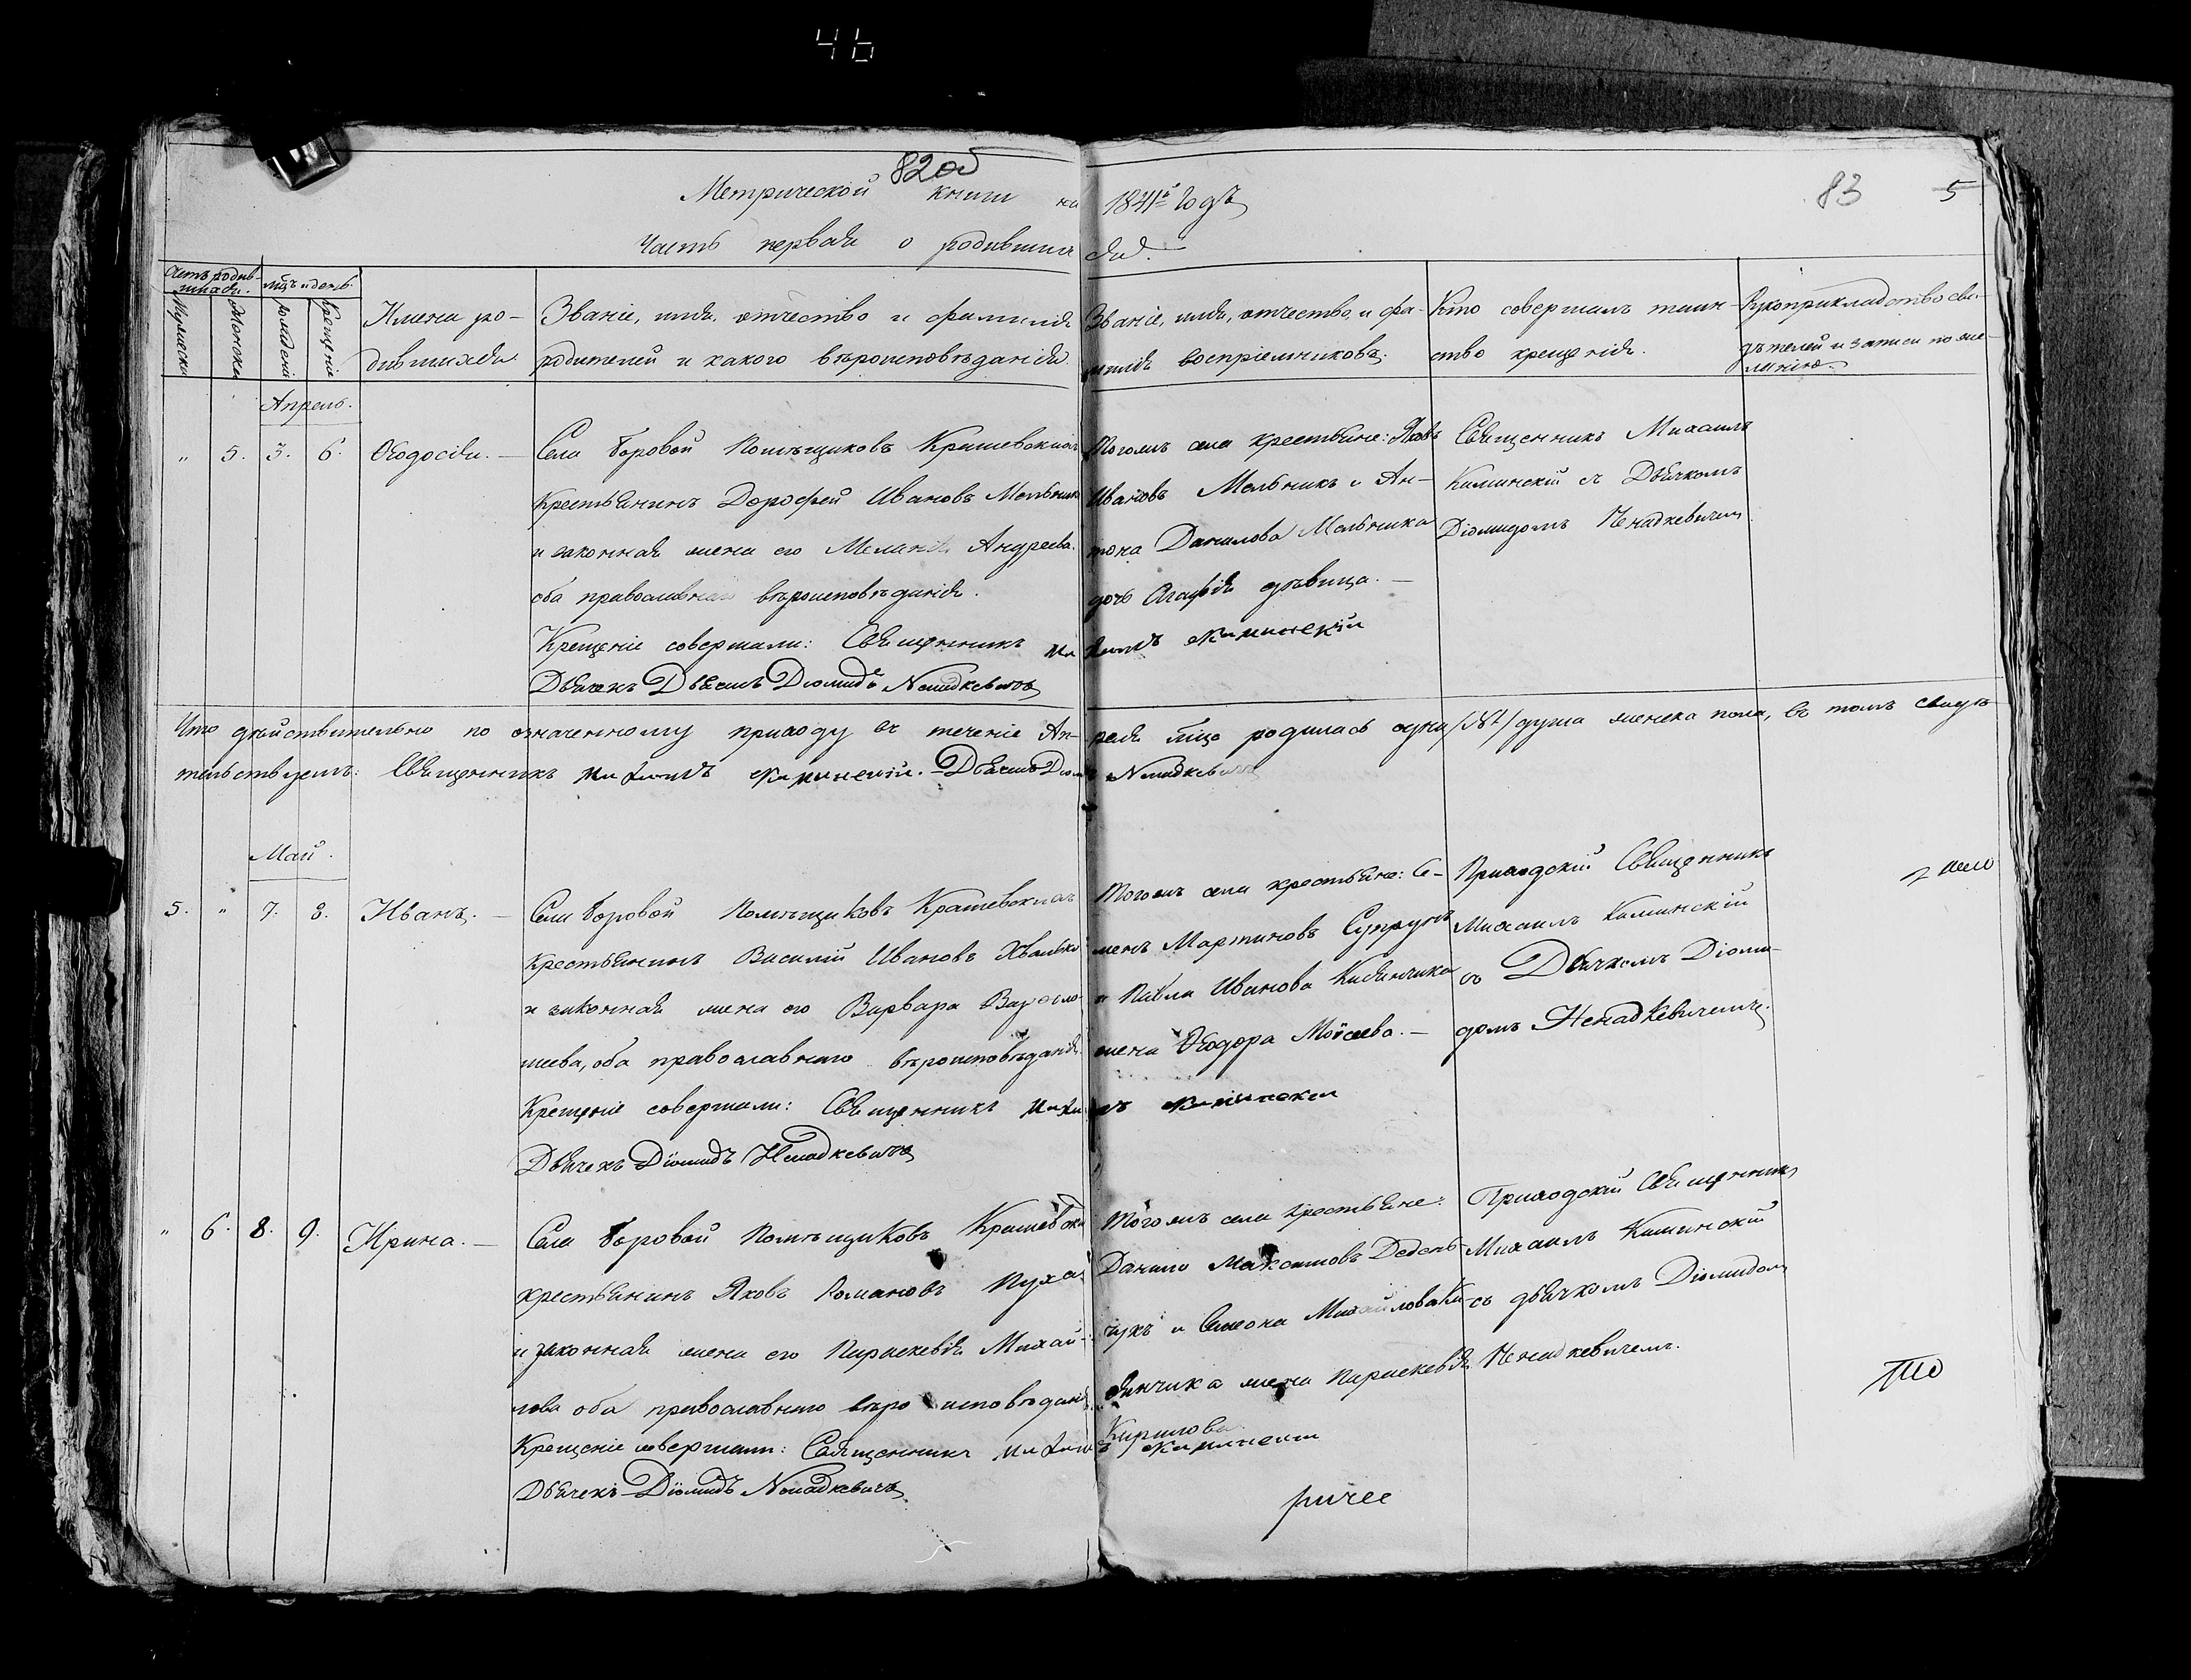 46
82об
83 5
Метрической книги на 1841й Годъ
Часть первая о родившихся.
Счетъ родив-
шихся.
мцъ и день.
Мужеска
Женска
рожденія
Крещенія
Имена ро-
дившихся
Званіе, имя, отчество и фамилія
родителей и какого вѣроисповѣданія.
Званіе, имя, отчество, и фа-
милія воспріемниковъ.
Кто совершалъ таин-
ство крещенія.
Рукоприкладство сви-
дѣтелей и записи по же-
ланію.
Апрель.
" 5. 3. 6. Ѳеодосія. —
Села Боровой Помѣщиковъ Крашевскихъ
Крестьянинъ Дорофей Ивановъ Мельникъ
и законная жена его Меланія Андреева.
оба православнаго вѣроисповѣданія.
Крещеніе совершали: Священникъ Михаилъ Каминскій
Дьячекъ Дьячекъ Діомидъ Ненадкевичъ
Тогожъ села крестьяне: Яковъ
Ивановъ Мельникъ и Ан-
тона Данилова Мельника
дочь Агафія дѣвица. —
Священникъ Михаилъ
Каминскій съ Дьячкомъ
Діомидомъ Ненадкевичем
Что дѣйствительно по означенному приходу въ теченіе Ап-
реля мца родилась одна /№1/ душа женска пола, въ томъ свидѣ-
тельствуемъ: Священникъ Михаилъ Каминскій. — Дьячекъ Діомидъ Ненадкевичъ
Май.
5. " 7. 8. Иванъ. —
Села Боровой Помѣщиковъ Крашевскихъ
Крестьянинъ Василій Ивановъ
и законная жена его Варвара Варѳоло-
меева, оба православнаго вѣроисповѣданія.
Крещеніе совершали: Священникъ Михаилъ Каминскій
Дьячекъ Діомидъ Ненадкевичъ
Тогожъ села крестьяне: Се-
менъ Мартиновъ Супрунъ
и Павла Иванова Касянчика
жена Ѳеодора Моѵсеева. —
Приходскій Священникъ
Михаилъ Каминскій
съ Дьячкомъ Діоми-
домъ Ненадкевичемъ.
" 6. 8. 9. Ирина. —
Села Боровой Помѣщиковъ Крашевски
крестьянинъ Яковъ Романовъ Пуха
и законная жена его Параскевія Михай-
лова оба православнаго вѣроисповѣданія
Крещеніе совершали: Священникъ Михаилъ Каминскій
Дьячекъ Діомидъ Ненадкевичъ
Тогожъ села крестьяне:
Данило Максимовъ Деден-
чукъ и Симеона Михайлова Ка-
сянчика жена Параскевія
Кирилова
Приходскій Священникъ
Михаилъ Каминскій
съ дьячкомъ Діомидом
Ненадкевичемъ.